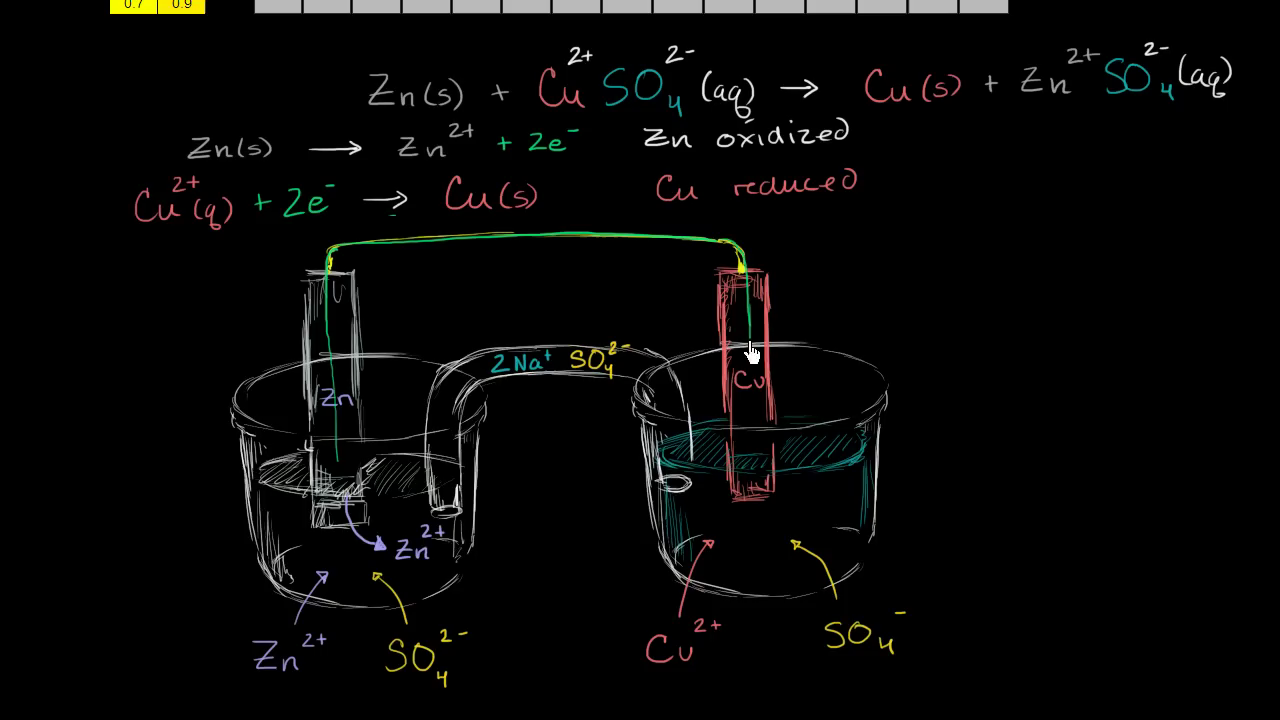 0.7 0.9
Zn(s) + Cu²⁺ SO₄²⁻ (aq) → Cu(s) + Zn²⁺ SO₄²⁻ (aq)
Zn(s) → Zn²⁺ + 2e⁻ Zn oxidized
Cu²⁺(q) + 2e⁻ → Cu(s) Cu reduced
2Na⁺ SO₄²⁻
Zn
Cu
Zn²⁺
Zn²⁺ SO₄²⁻
Cu²⁺ SO₄⁻